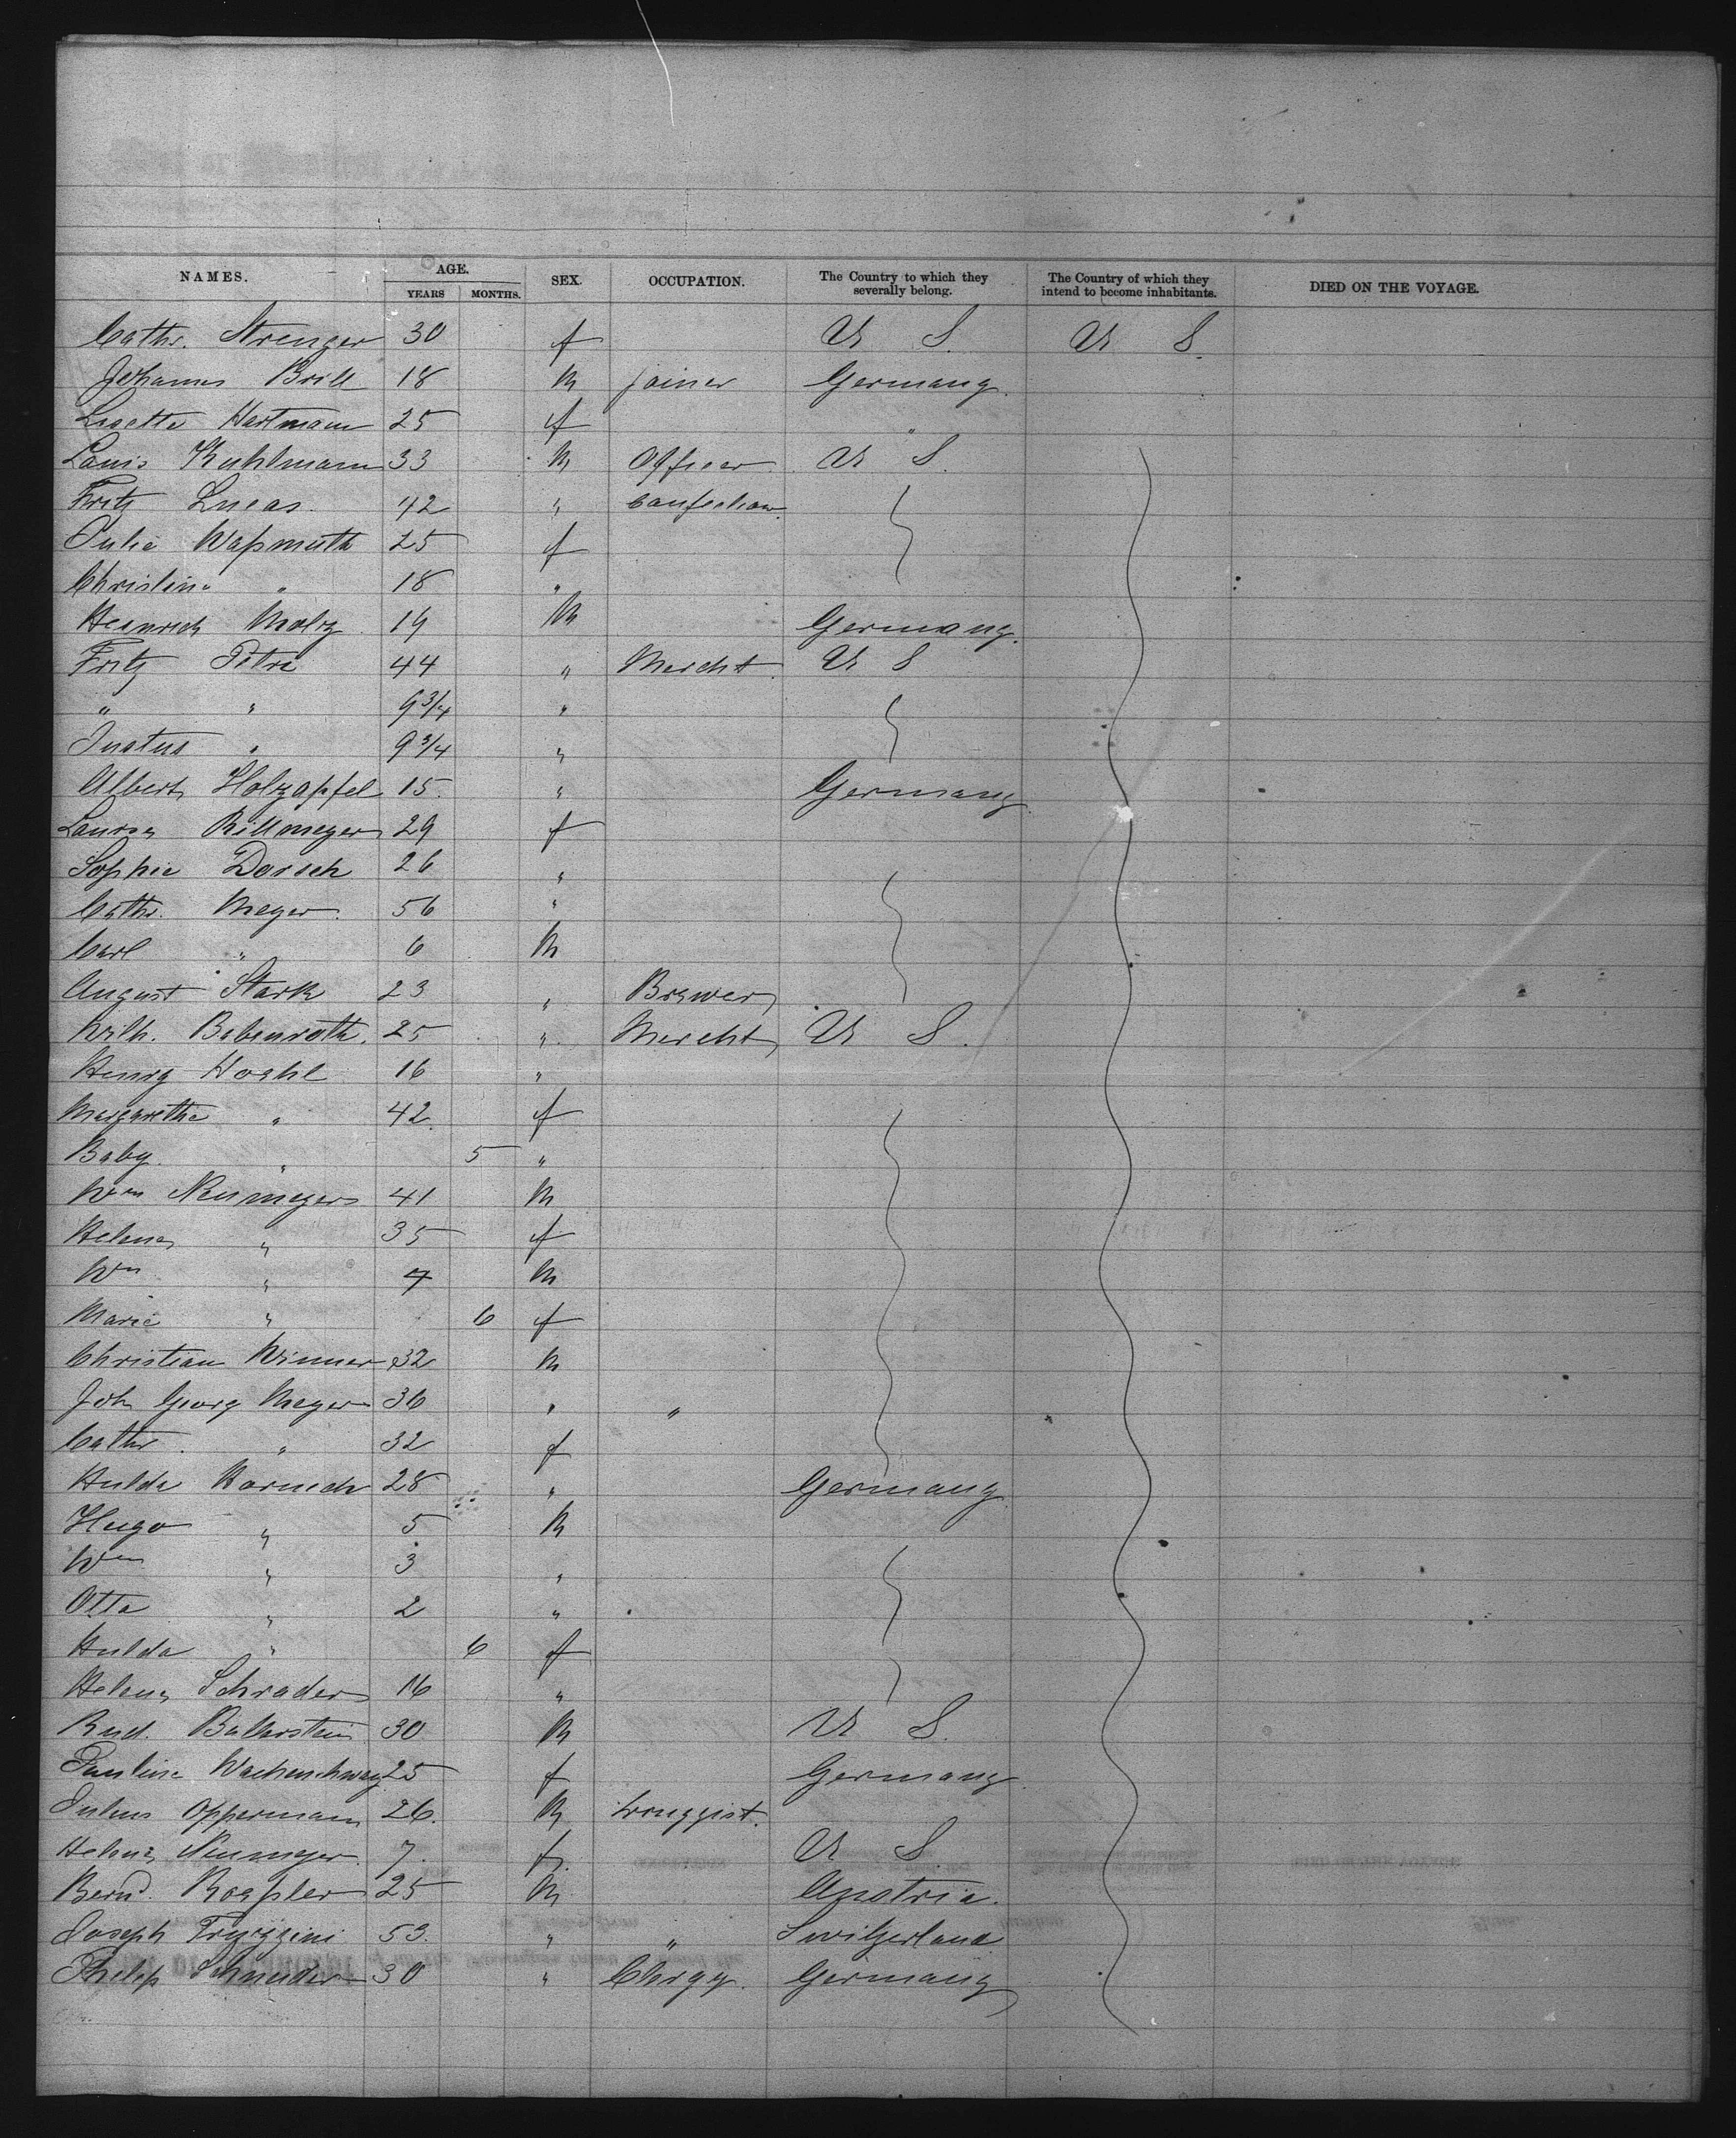 NAMES. AGE. YEARS MONTHS. SEX. OCCUPATION. The Country to which they severally belong. The Country of which they intend to become inhabitants. DIED ON THE VOYAGE.
Cathr. Strenger 30 f U S. U S.
Johannes Brill 18 M joiner Germany
Lisette Hartmann 25 f "
Louis Kuhlmann 33 M Officer U S.
Fritz Lucas 42 "
Julie Waßmuth 25 f
Christine " 18 "
Heinrich Molz 19 M Germany.
Fritz Petri 44 " Mercht. U S
" " 9 3/4 "
Justus " 9 3/4 "
Albert Holzapfel 15. " Germany
Louise Rillmeyer 29 f
Sophie Dorsch 26 "
Cathr. Meyer 56 "
Carl " 6 M
August Stark 23 " Brewer
Wilh. Babenroth. 25 " Mercht U S.
Henry Hoehl 16 "
Margarethe " 42. f
Baby " 5 "
Wm Neumeyer 41 M
Helene " 35 f
Wm " 4 M
Marie " 6 f
Christian Winner 32 M
Joh Georg Meyer 36 " "
Cathr. " 32 f
Hulda 28 " Germany
Hugo " 5 M
Wm " 3 "
Otto " 2 "
Hulda " 6 f
Helene Schrader 16 "
Rud. 30 M U S.
Pauline 25 f Germany
Julius Oppermann 26. M Druggist.
Helene Neumeyer 7. f. U S.
Bernd. Roeßler 25 M Austria.
Joseph 53. " " Switzerland
Philip Schneider 30 " Clergy. Germany